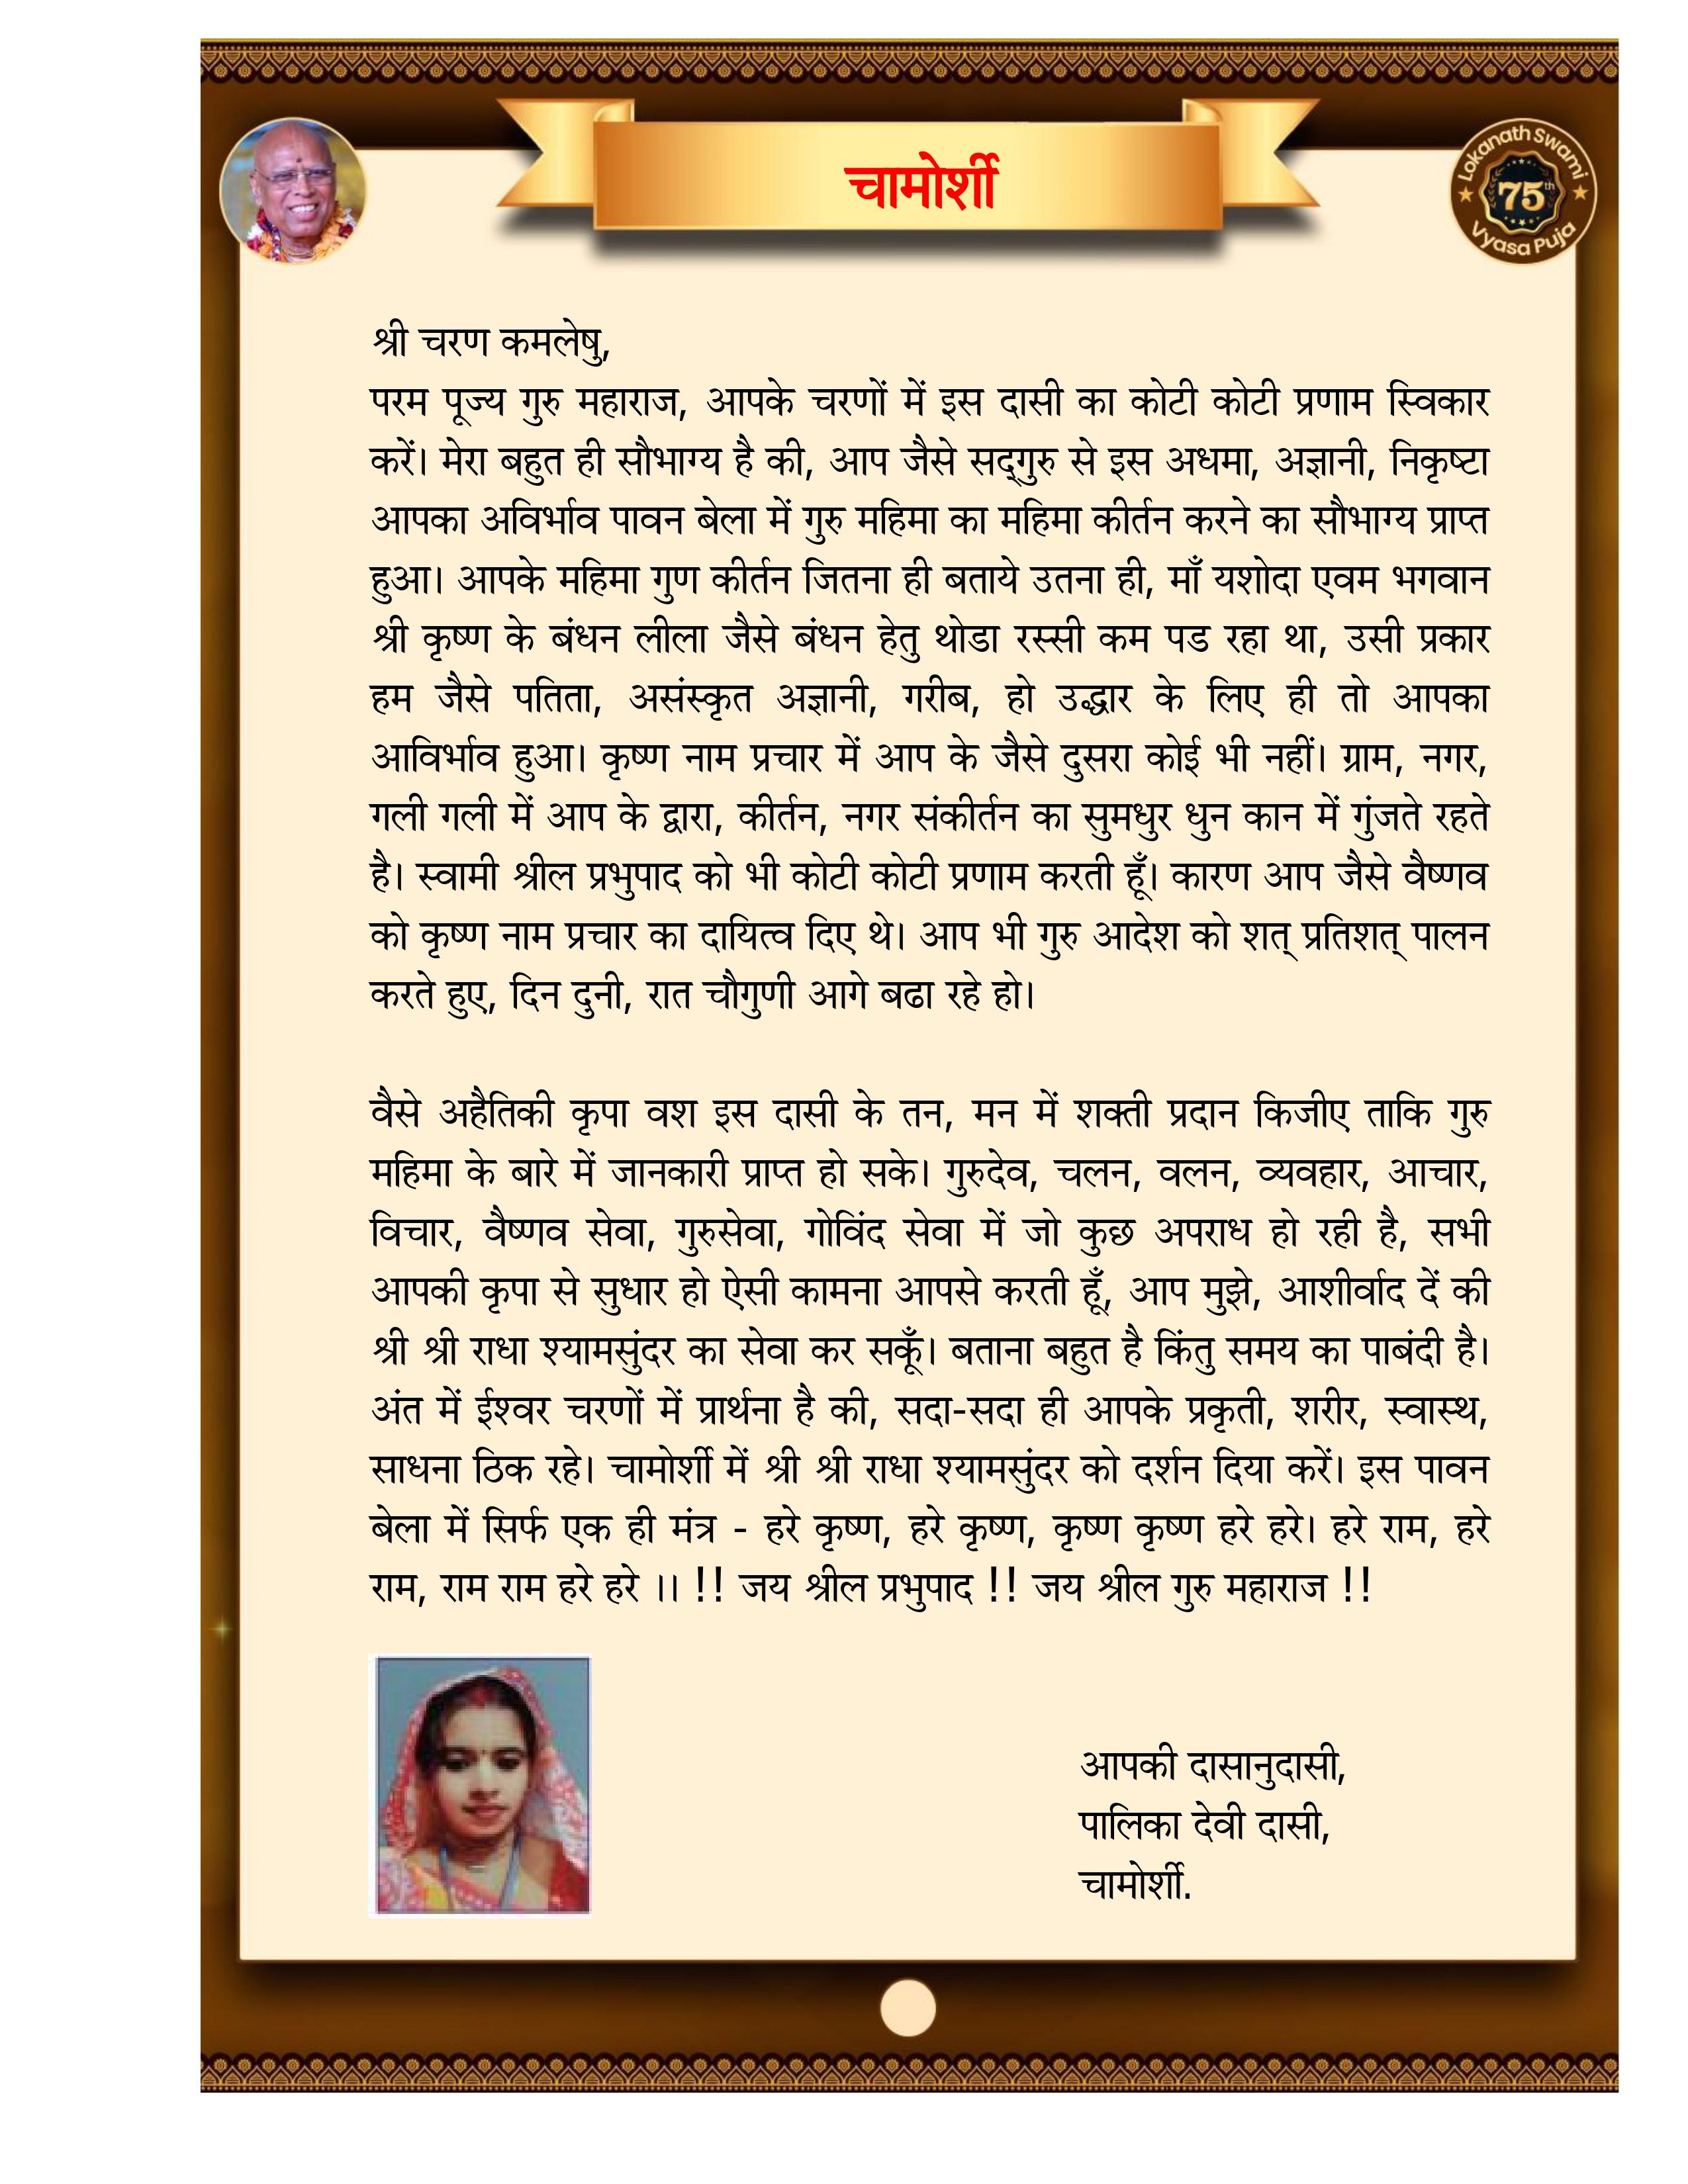 चामोर्शी
Lokanath Swami
75th
Vyasa Puja
श्री चरण कमलेषु,
परम पूज्य गुरु महाराज, आपके चरणों में इस दासी का कोटी कोटी प्रणाम स्विकार
करें। मेरा बहुत ही सौभाग्य है की, आप जैसे सद्‌गुरु से इस अधमा, अज्ञानी, निकृष्टा
आपका अविर्भाव पावन बेला में गुरु महिमा का महिमा कीर्तन करने का सौभाग्य प्राप्त
हुआ। आपके महिमा गुण कीर्तन जितना ही बताये उतना ही, माँ यशोदा एवम भगवान
श्री कृष्ण के बंधन लीला जैसे बंधन हेतु थोडा रस्सी कम पड रहा था, उसी प्रकार
हम जैसे पतिता, असंस्कृत अज्ञानी, गरीब, हो उद्धार के लिए ही तो आपका
आविर्भाव हुआ। कृष्ण नाम प्रचार में आप के जैसे दुसरा कोई भी नहीं। ग्राम, नगर,
गली गली में आप के द्वारा, कीर्तन, नगर संकीर्तन का सुमधुर धुन कान में गुंजते रहते
है। स्वामी श्रील प्रभुपाद को भी कोटी कोटी प्रणाम करती हूँ। कारण आप जैसे वैष्णव
को कृष्ण नाम प्रचार का दायित्व दिए थे। आप भी गुरु आदेश को शत् प्रतिशत् पालन
करते हुए, दिन दुनी, रात चौगुणी आगे बढा रहे हो।
वैसे अहैतिकी कृपा वश इस दासी के तन, मन में शक्ती प्रदान किजीए ताकि गुरु
महिमा के बारे में जानकारी प्राप्त हो सके। गुरुदेव, चलन, वलन, व्यवहार, आचार,
विचार, वैष्णव सेवा, गुरुसेवा, गोविंद सेवा में जो कुछ अपराध हो रही है, सभी
आपकी कृपा से सुधार हो ऐसी कामना आपसे करती हूँ, आप मुझे, आशीर्वाद दें की
श्री श्री राधा श्यामसुंदर का सेवा कर सकूँ। बताना बहुत है किंतु समय का पाबंदी है।
अंत में ईश्वर चरणों में प्रार्थना है की, सदा-सदा ही आपके प्रकृती, शरीर, स्वास्थ,
साधना ठिक रहे। चामोर्शी में श्री श्री राधा श्यामसुंदर को दर्शन दिया करें। इस पावन
बेला में सिर्फ एक ही मंत्र - हरे कृष्ण, हरे कृष्ण, कृष्ण कृष्ण हरे हरे। हरे राम, हरे
राम, राम राम हरे हरे ।। !! जय श्रील प्रभुपाद !! जय श्रील गुरु महाराज !!
आपकी दासानुदासी,
पालिका देवी दासी,
चामोर्शी.